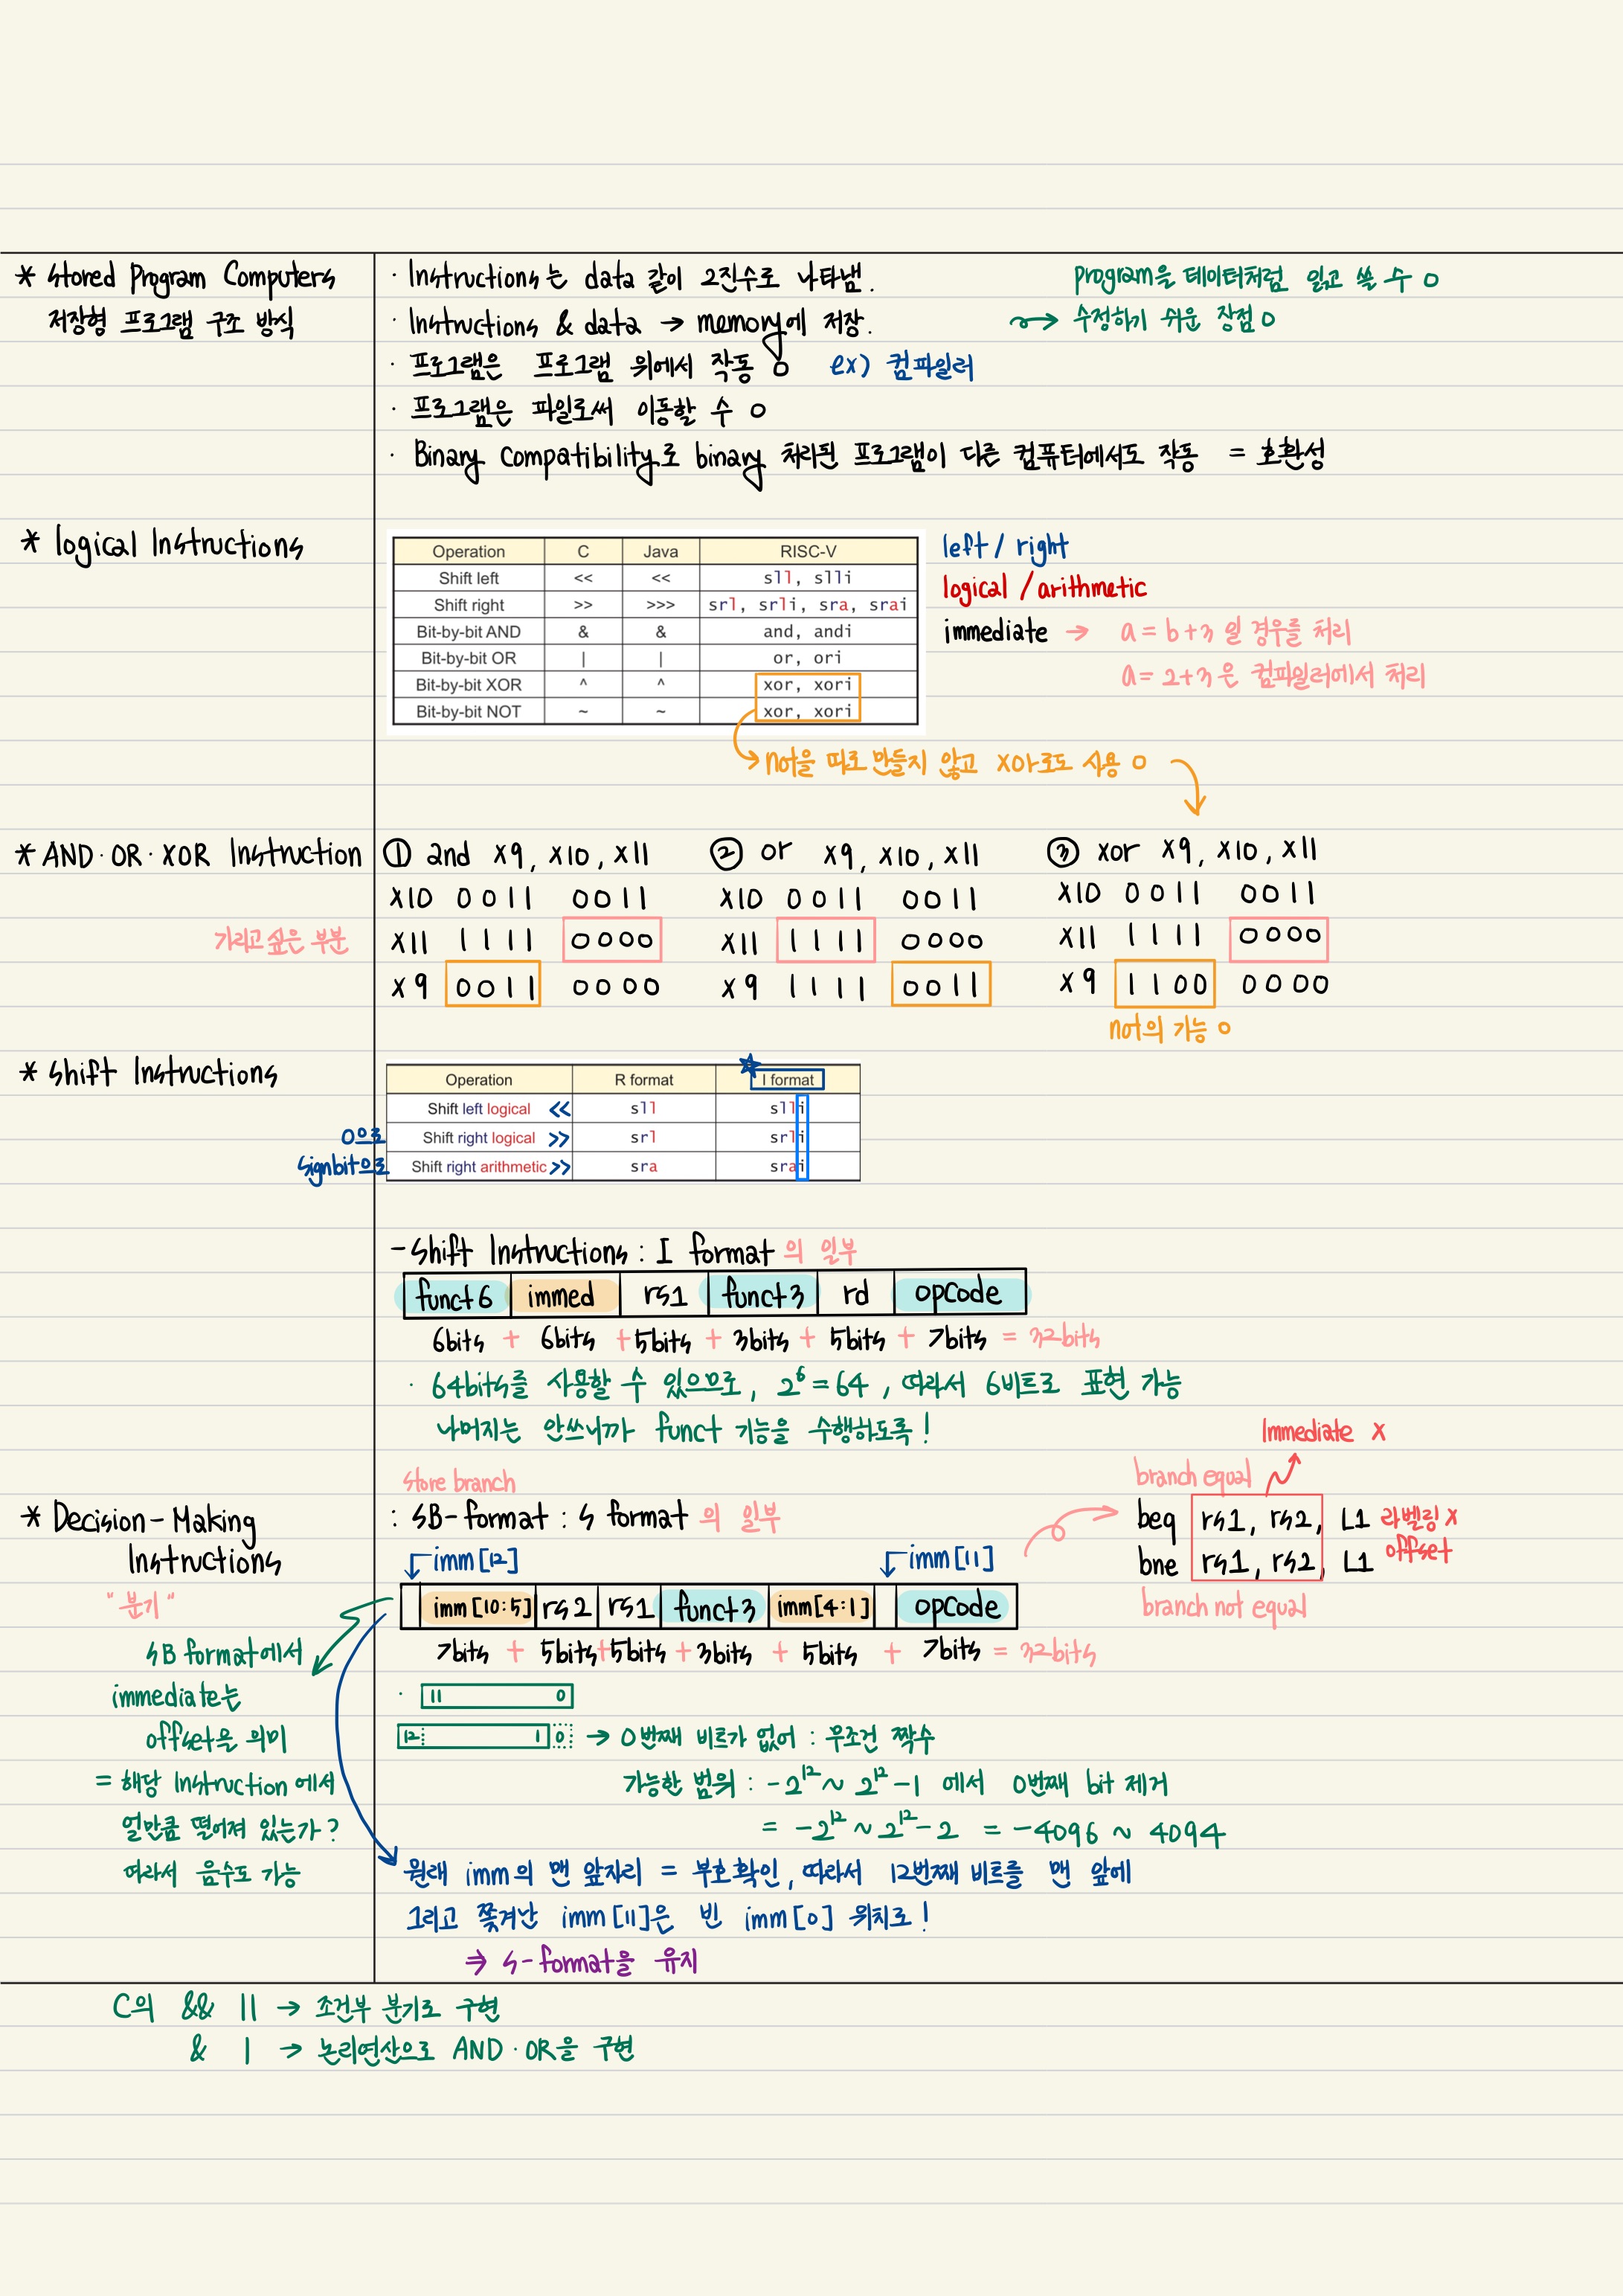 * Stored Program Computers
저장형 프로그램 구조 방식
· Instructions는 data 같이 2진수로 나타냄.
· Instructions & data → memory에 저장.
program을 데이터처럼 읽고 쓸 수 O
→ 수정하기 쉬운 장점 O
· 프로그램은 프로그램 위에서 작동 O ex) 컴파일러
· 프로그램은 파일로써 이동할 수 O
· Binary Compatibility로 binary 처리된 프로그램이 다른 컴퓨터에서도 작동 = 호환성
* logical Instructions
Operation C Java RISC-V
Shift left << << sll, slli
Shift right >> >>> srl, srli, sra, srai
Bit-by-bit AND & & and, andi
Bit-by-bit OR | | or, ori
Bit-by-bit XOR ^ ^ xor, xori
Bit-by-bit NOT ~ ~ xor, xori
left / right
logical / arithmetic
immediate → a = b+3 일 경우를 처리
a = 2+3 은 컴파일러에서 처리
not을 따로 만들지 않고 xor로도 사용 O
* AND·OR·XOR Instruction
가리고 싶은 부분
① and x9, x10, x11
x10 0011 0011
x11 1111 0000
x9 0011 0000
② or x9, x10, x11
x10 0011 0011
x11 1111 0000
x9 1111 0011
③ xor x9, x10, x11
x10 0011 0011
x11 1111 0000
x9 1100 0000
not의 기능 O
* Shift Instructions
Operation R format I format
Shift left logical << sll slli
0으로 Shift right logical >> srl srli
signbit으로 Shift right arithmetic >> sra srai
- Shift Instructions : I format 의 일부
funct6 immed rs1 funct3 rd opcode
6bits + 6bits + 5bits + 3bits + 5bits + 7bits = 32bits
· 64bits를 사용할 수 있으므로, 2⁶ = 64, 따라서 6비트로 표현 가능
나머지는 안쓰니까 funct 기능을 수행하도록!
* Decision-Making
Instructions
"분기"
store branch
: SB-format : S format 의 일부
Immediate X
branch equal
beq rs1, rs2, L1 라벨링 X
bne rs1, rs2, L1 offset
branch not equal
imm[12] imm[11]
imm[10:5] rs2 rs1 funct3 imm[4:1] opcode
7bits + 5bits + 5bits + 3bits + 5bits + 7bits = 32bits
SB format에서
immediate는
offset을 의미
= 해당 Instruction 에서
얼만큼 떨어져 있는가?
따라서 음수도 가능
· 11 0
12 1 0 → 0번째 비트가 없어 : 무조건 짝수
가능한 범위 : -2¹² ~ 2¹²-1 에서 0번째 bit 제거
= -2¹² ~ 2¹²-2 = -4096 ~ 4094
원래 imm의 맨 앞자리 = 부호확인, 따라서 12번째 비트를 맨 앞에
그리고 쫓겨난 imm[11]은 빈 imm[0] 위치로!
⇒ S-format을 유지
C의 && || → 조건부 분기로 구현
& | → 논리연산으로 AND·OR을 구현